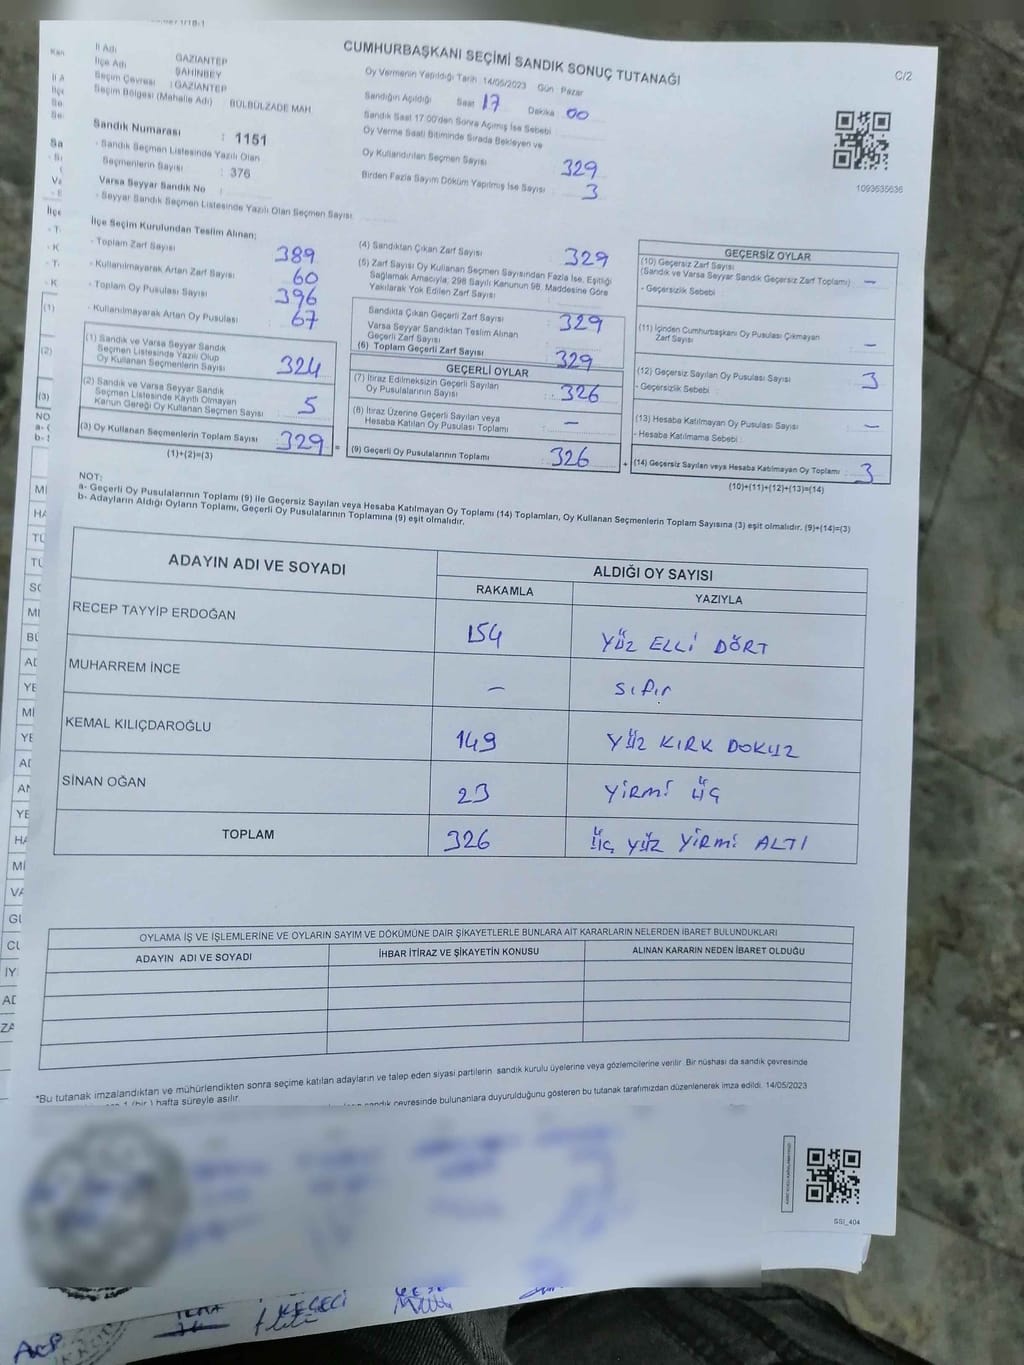 CUMHURBAŞKANI SEÇİMİ SANDIK SONUÇ TUTANAĞI
C/2
İl Adı GAZİANTEP
İlçe Adı ŞAHİNBEY
Seçim Çevresi : GAZİANTEP
Seçim Bölgesi (Mahalle Adı) BÜLBÜLZADE MAH
Sandık Numarası : 1151
- Sandık Seçmen Listesinde Yazılı Olan
Seçmenlerin Sayısı : 376
Varsa Seyyar Sandık No :
- Seyyar Sandık Seçmen Listesinde Yazılı Olan Seçmen Sayısı
Oy Vermenin Yapıldığı Tarih 14/05/2023 Gün Pazar
Sandığın Açıldığı Saat 17 Dakika 00
Sandık Saat 17.00'den Sonra Açılmış İse Sebebi
Oy Verme Saati Bitiminde Sırada Bekleyen ve
Oy Kullandırılan Seçmen Sayısı 329
Birden Fazla Sayım Döküm Yapılmış İse Sayısı 3
1093635636
İlçe Seçim Kurulundan Teslim Alınan;
- Toplam Zarf Sayısı 389
- Kullanılmayarak Artan Zarf Sayısı 60
- Toplam Oy Pusulası Sayısı 396
- Kullanılmayarak Artan Oy Pusulası 67
(1) Sandık ve Varsa Seyyar Sandık
Seçmen Listesinde Yazılı Olup
Oy Kullanan Seçmenlerin Sayısı 324
(2) Sandık ve Varsa Seyyar Sandık
Seçmen Listesinde Kayıtlı Olmayan
Kanun Gereği Oy Kullanan Seçmen Sayısı 5
(3) Oy Kullanan Seçmenlerin Toplam Sayısı 329 =
(1)+(2)=(3)
(4) Sandıktan Çıkan Zarf Sayısı 329
(5) Zarf Sayısı Oy Kullanan Seçmen Sayısından Fazla İse, Eşitliği
Sağlamak Amacıyla; 298 Sayılı Kanunun 98. Maddesine Göre
Yakılarak Yok Edilen Zarf Sayısı
Sandıkta Çıkan Geçerli Zarf Sayısı 329
Varsa Seyyar Sandıktan Teslim Alınan
Geçerli Zarf Sayısı
(6) Toplam Geçerli Zarf Sayısı 329
GEÇERLİ OYLAR
(7) İtiraz Edilmeksizin Geçerli Sayılan
Oy Pusulalarının Sayısı : 326
(8) İtiraz Üzerine Geçerli Sayılan veya
Hesaba Katılan Oy Pusulası Toplamı : –
(9) Geçerli Oy Pusulalarının Toplamı 326 +
GEÇERSİZ OYLAR
(10) Geçersiz Zarf Sayısı
(Sandık ve Varsa Seyyar Sandık Geçersiz Zarf Toplamı) –
- Geçersizlik Sebebi
(11) İçinden Cumhurbaşkanı Oy Pusulası Çıkmayan
Zarf Sayısı –
(12) Geçersiz Sayılan Oy Pusulası Sayısı 3
- Geçersizlik Sebebi :
(13) Hesaba Katılmayan Oy Pusulası Sayısı –
- Hesaba Katılmama Sebebi
(14) Geçersiz Sayılan veya Hesaba Katılmayan Oy Toplamı 3
(10)+(11)+(12)+(13)=(14)
NOT;
a- Geçerli Oy Pusulalarının Toplamı (9) ile Geçersiz Sayılan veya Hesaba Katılmayan Oy Toplamı (14) Toplamları, Oy Kullanan Seçmenlerin Toplam Sayısına (3) eşit olmalıdır. (9)+(14)=(3)
b- Adayların Aldığı Oyların Toplamı, Geçerli Oy Pusulalarının Toplamına (9) eşit olmalıdır.
ADAYIN ADI VE SOYADI ALDIĞI OY SAYISI
RAKAMLA YAZIYLA
RECEP TAYYİP ERDOĞAN 154 YÜZ ELLİ DÖRT
MUHARREM İNCE – sıfır
KEMAL KILIÇDAROĞLU 149 YÜZ KIRK DOKUZ
SİNAN OĞAN 23 YİRMİ ÜÇ
TOPLAM 326 ÜÇ YÜZ YİRMİ ALTI
OYLAMA İŞ VE İŞLEMLERİNE VE OYLARIN SAYIM VE DÖKÜMÜNE DAİR ŞİKAYETLERLE BUNLARA AİT KARARLARIN NELERDEN İBARET BULUNDUKLARI
ADAYIN ADI VE SOYADI İHBAR İTİRAZ VE ŞİKAYETİN KONUSU ALINAN KARARIN NEDEN İBARET OLDUĞU
*Bu tutanak imzalandıktan ve mühürlendikten sonra seçime katılan adayların ve talep eden siyasi partilerin sandık kurulu üyelerine veya gözlemcilerine verilir. Bir nüshası da sandık çevresinde
(bir) hafta süreyle asılır.
sandık çevresinde bulunanlara duyurulduğunu gösteren bu tutanak tarafımızdan düzenlenerek imza edildi. 14/05/2023
SSI_404
KEÇECİ